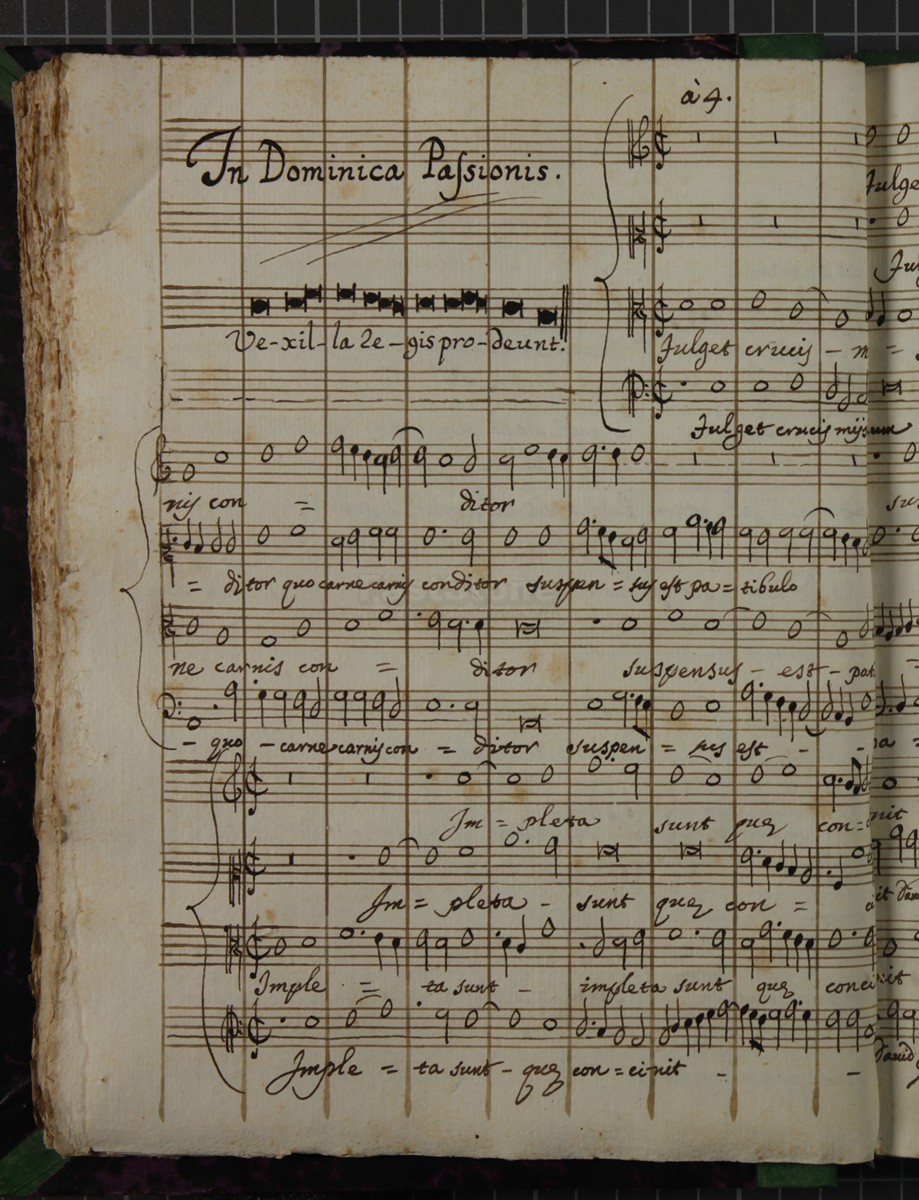 à 4.
In Dominica Paſsionis.
Fulge
Ful
Ve-xil-la Re-gis pro-deunt.
Fulget crucis - m = -
Fulget crucis mijsum
nis con = ditor
sus
= ditor quo carne carnis conditor suspen = sus est pa = tibulo
ne carnis con = ditor suspensus - est - pat =
- quo - carne carnis con = ditor suspen = sus est - - pa =
Im = pleta sunt quę con= cinit
Im = pleta - sunt quę con =
Imple = ta sunt - impleta sunt quę concinit
Imple = ta sunt - quę con = cinit - - David